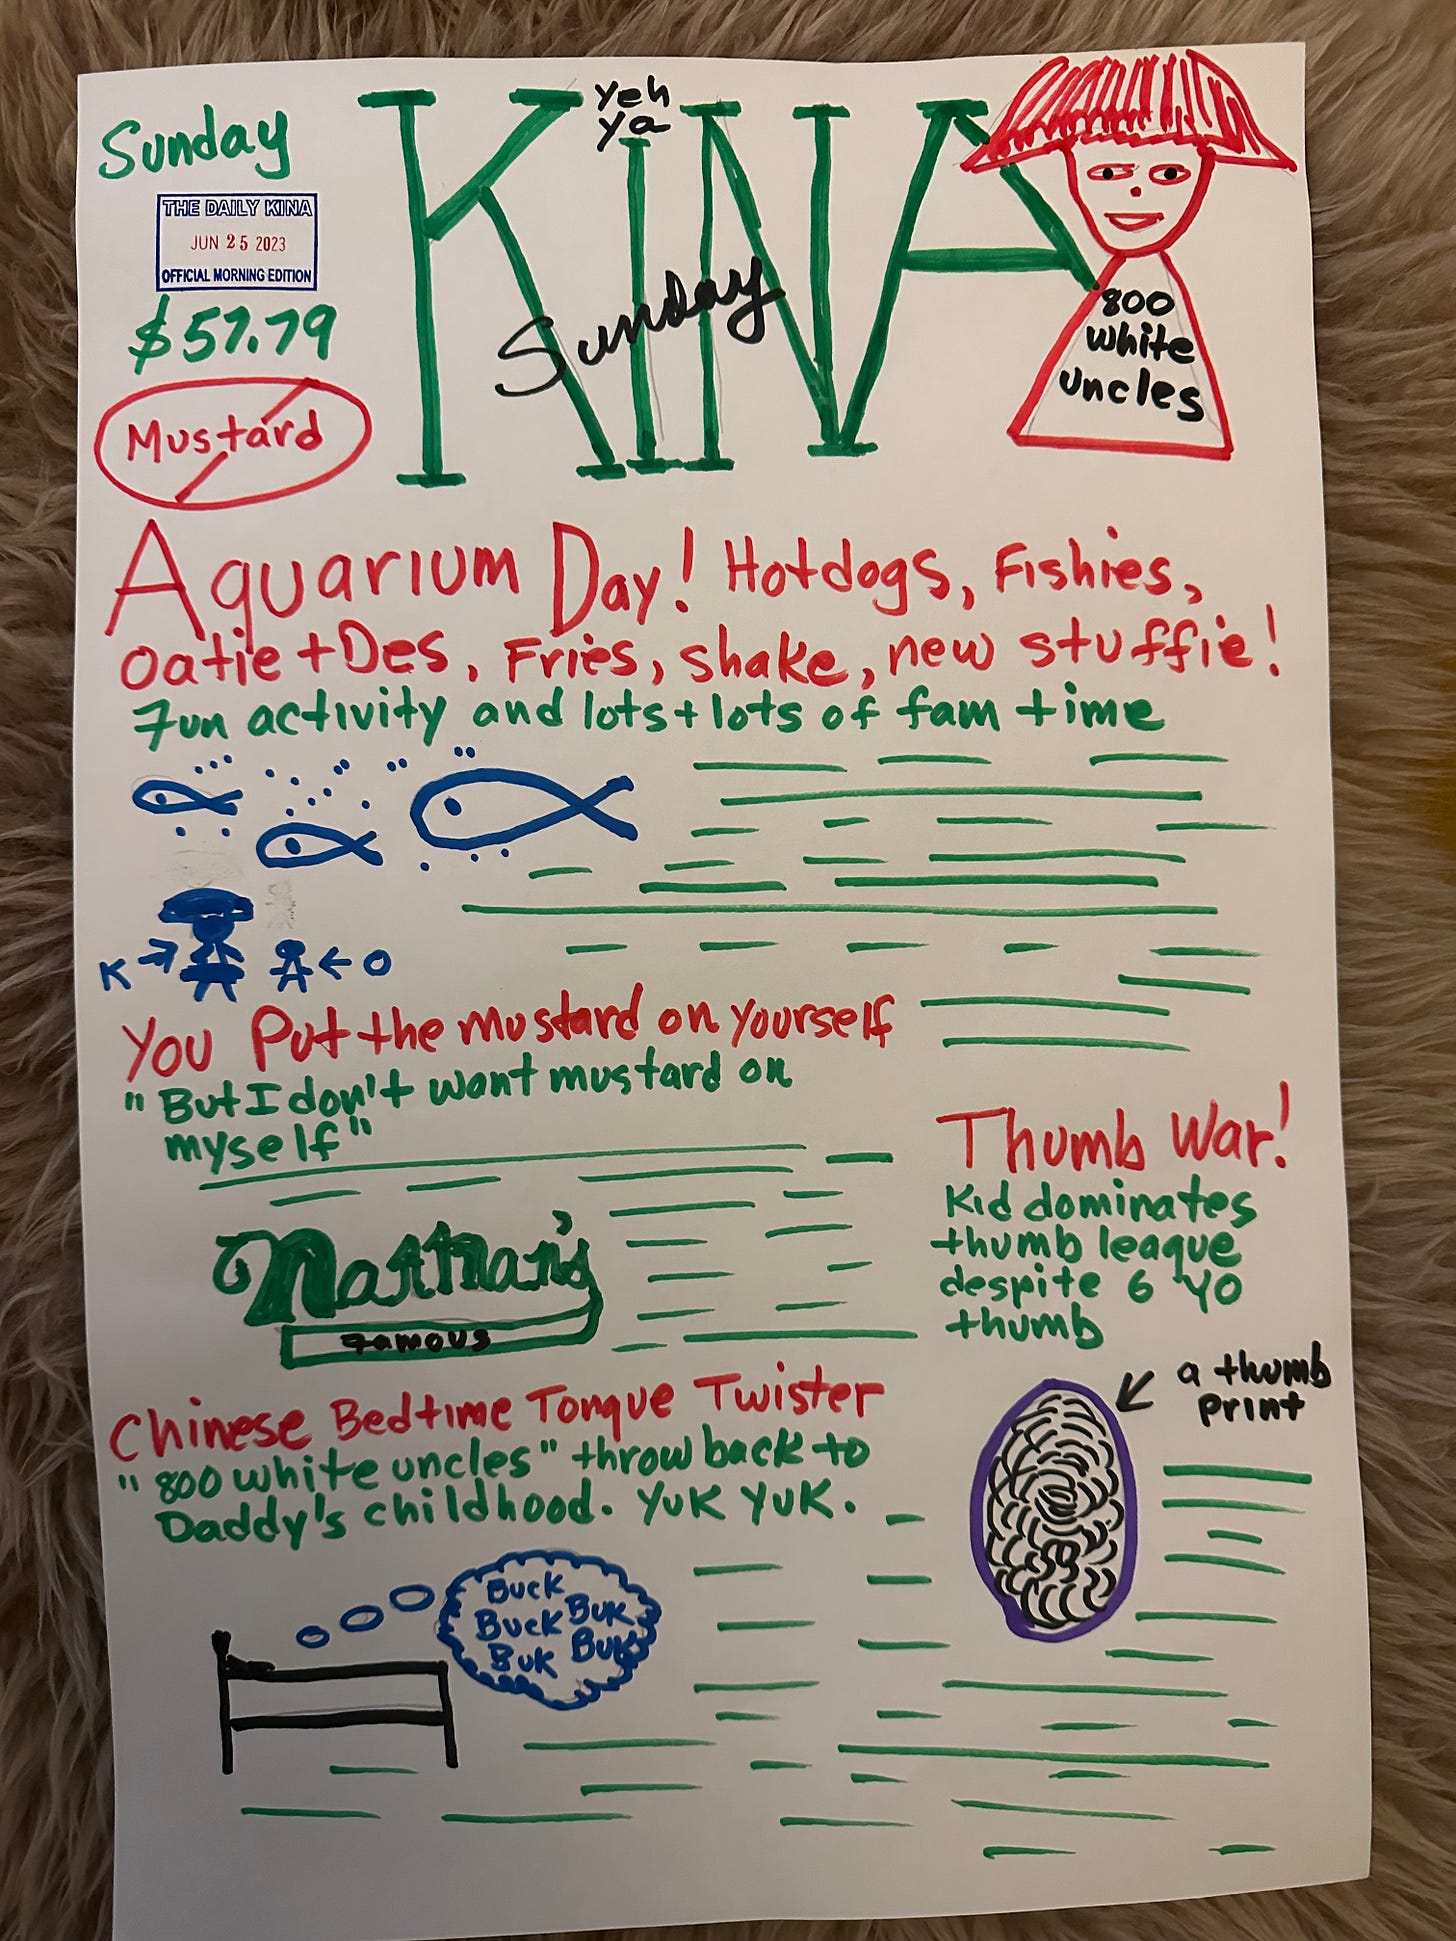 Sunday
THE DAILY KINA
JUN 25 2023
OFFICIAL MORNING EDITION
$57.79
Mustard
yeh
ya
KINA
Sunday
800
white
uncles
Aquarium Day! Hotdogs, Fishies,
Oatie + Des, Fries, shake, new stuffie!
Fun activity and lots + lots of fam time
K
O
You Put the mustard on yourself
"But I don't want mustard on
myself"
Nathan's
Famous
Thumb War!
Kid dominates
thumb league
despite 6 YO
thumb
a thumb
print
Chinese Bedtime Tongue Twister
"800 white uncles" throw back to
Daddy's childhood. YUK YUK.
Buck
Buck Buk
Buk Buk